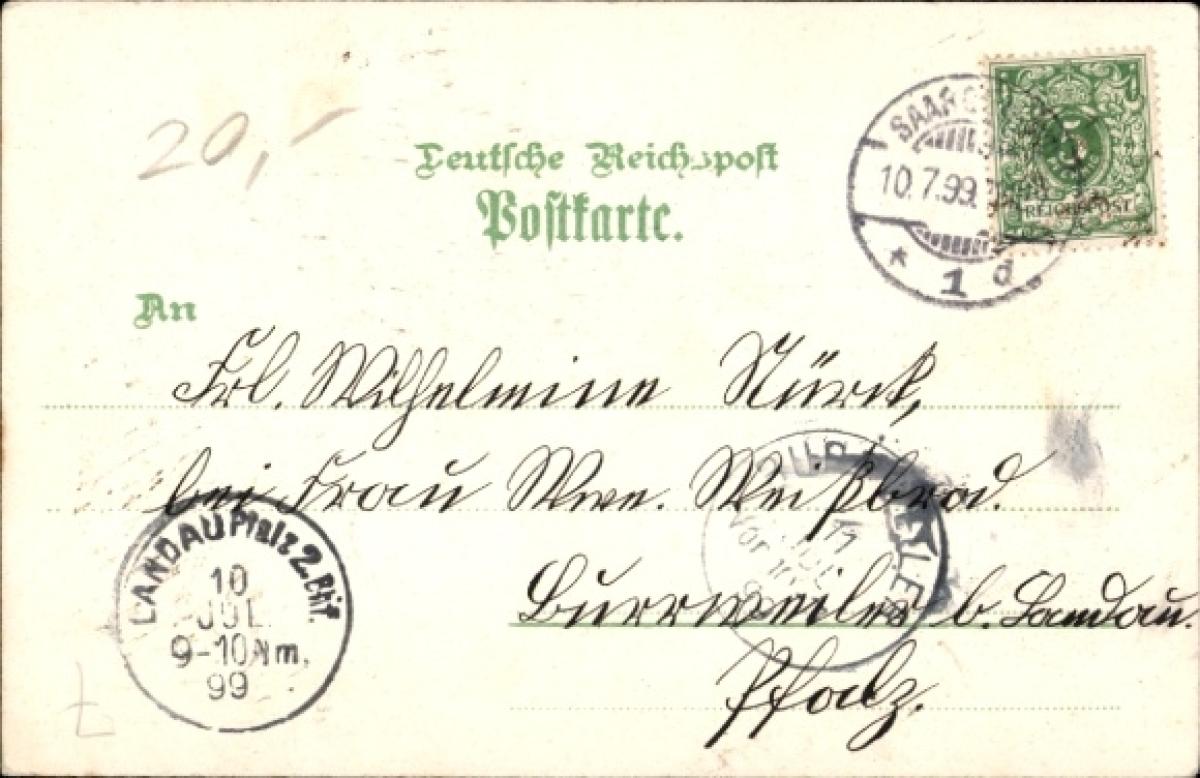 20,-
Deutsche Reichspost
Postkarte.
SAARG
10.7.99.
* 1 d
5
REICHSPOST
An
Frl. Wilhelmine Stürck,
bei Frau Wwe. Weißbrod.
Burrweiler b. Landau.
Pfalz.
LANDAU Pfalz 2. Bhf.
10
JUL
9-10 Nm.
99